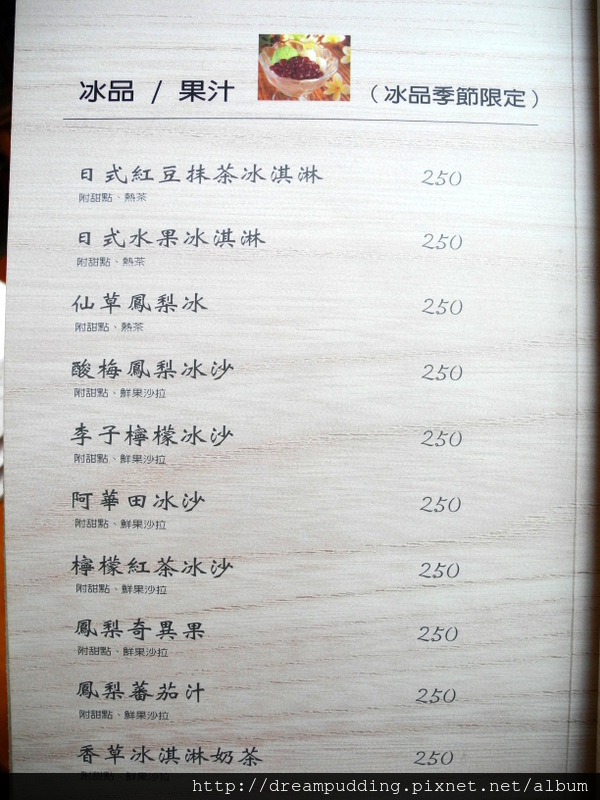 冰品 / 果汁 （冰品季節限定）
日式紅豆抹茶冰淇淋 250
附甜點、熱茶
日式水果冰淇淋 250
附甜點、熱茶
仙草鳳梨冰 250
附甜點、熱茶
酸梅鳳梨冰沙 250
附甜點、鮮果沙拉
李子檸檬冰沙 250
附甜點、鮮果沙拉
阿華田冰沙 250
附甜點、鮮果沙拉
檸檬紅茶冰沙 250
附甜點、鮮果沙拉
鳳梨奇異果 250
附甜點、鮮果沙拉
鳳梨蕃茄汁 250
附甜點、鮮果沙拉
香草冰淇淋奶茶 250
附甜點、鮮果沙拉
http://dreampudding.pixnet.net/album